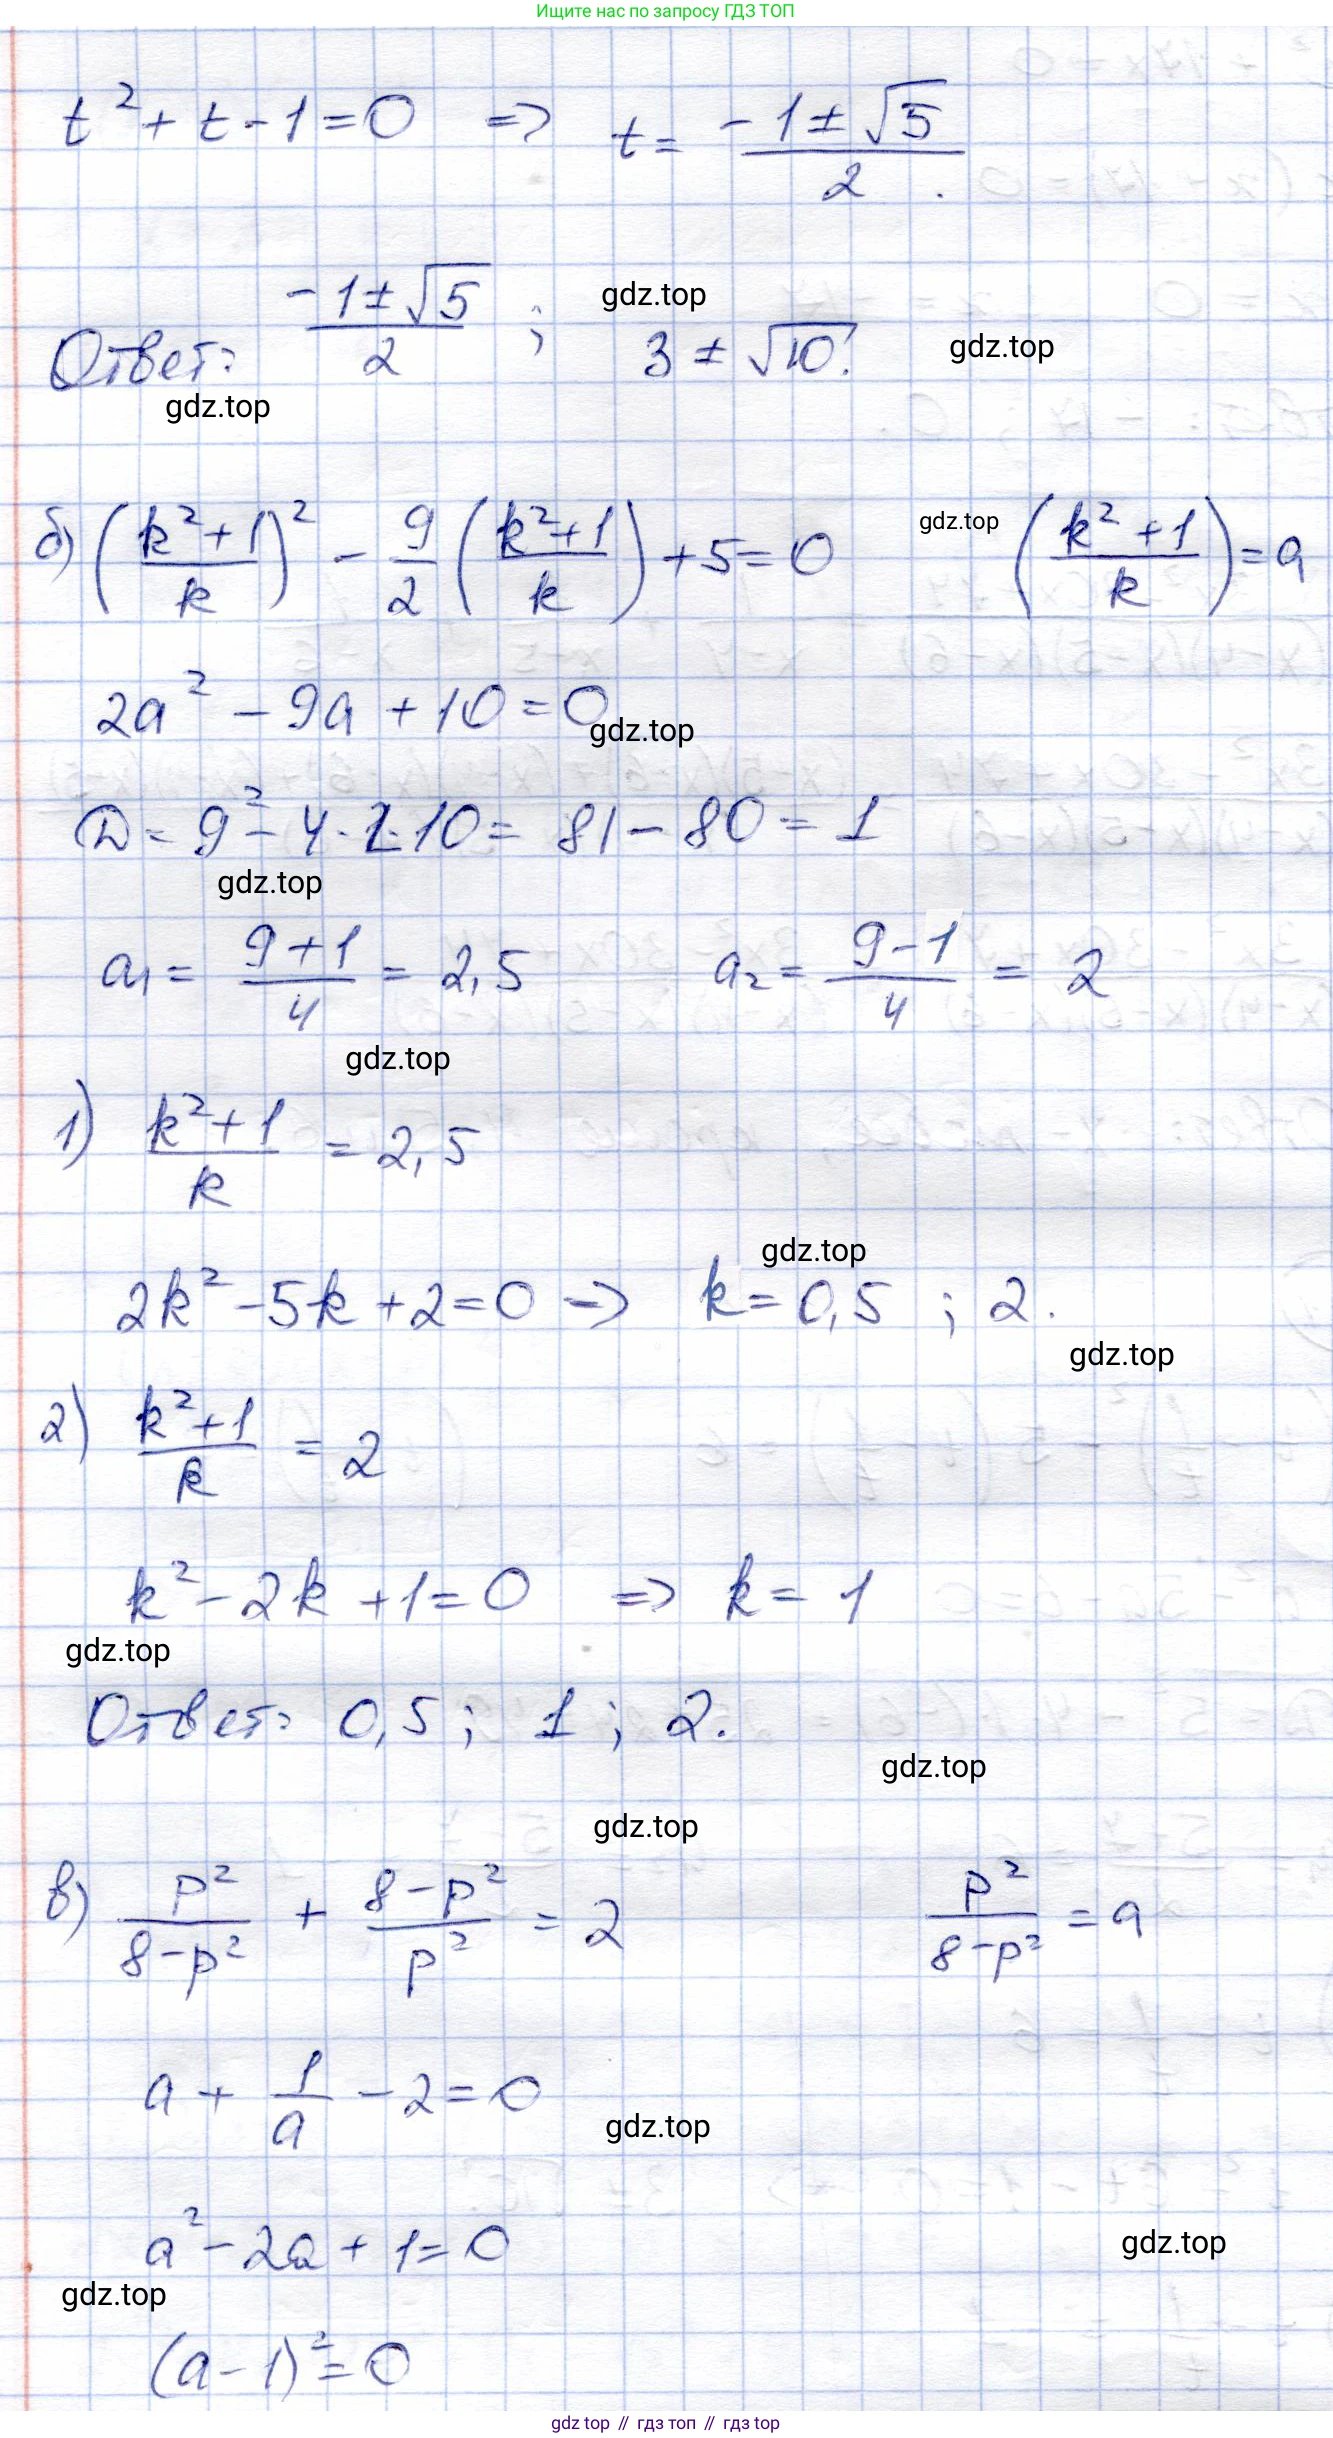 Ищите нас по запросу ГДЗ ТОП
t² + t - 1 = 0 => t = (-1 ± √5)/2.
gdz.top
Ответ: (-1 ± √5)/2 ; 3 ± √10.
gdz.top
gdz.top
б) ((k² + 1)/k)² - 9/2 ((k² + 1)/k) + 5 = 0 gdz.top ((k² + 1)/k) = a
2a² - 9a + 10 = 0
gdz.top
D = 9² - 4 · 2 · 10 = 81 - 80 = 1
gdz.top
a₁ = (9 + 1)/4 = 2,5 a₂ = (9 - 1)/4 = 2
gdz.top
1) (k² + 1)/k = 2,5
gdz.top
2k² - 5k + 2 = 0 => k = 0,5 ; 2.
gdz.top
2) (k² + 1)/k = 2
k² - 2k + 1 = 0 => k = 1
gdz.top
Ответ: 0,5 ; 1 ; 2.
gdz.top
gdz.top
в) p²/(8 - p²) + (8 - p²)/p² = 2 p²/(8 - p²) = a
a + 1/a - 2 = 0
gdz.top
a² - 2a + 1 = 0
gdz.top
gdz.top
(a - 1)² = 0
gdz top // гдз топ // гдз top